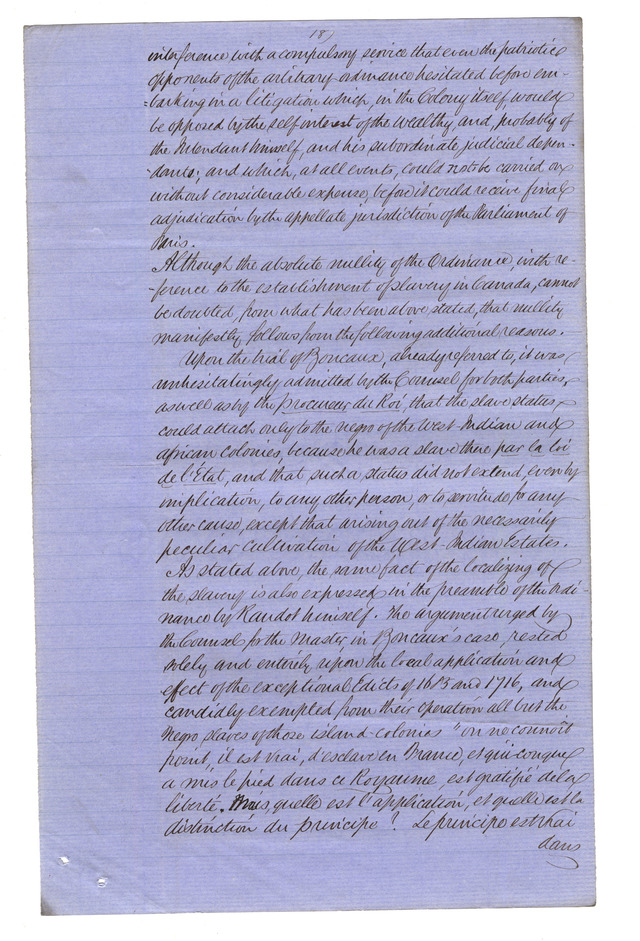 18)
interference with a compulsory service that even the patriotic
opponents of the arbitrary ordinance hesitated before em-
=barking in a litigation which, in the Colony itself, would
be opposed by the self interest of the wealthy, and, probably of
the Intendant himself, and his subordinate, judicial depen-
-dants; and which, at all events, could not be carried on
without considerable expense, before it could receive final
adjudication by the appellate jurisdiction of the Parliament of
Paris.
Although the absolute nullity of the Ordinance, with re-
-ference to the establishment of slavery in Canada, cannot
be doubted, from what has been above stated, that nullity
manifestly follows from the following additional reasons.
Upon the trial of Boucaux, already referred to, it was
unhesitatingly admitted by the Counsel for both parties,
as well as by the Procureur du Roi, that the slave status
could attach only to the negro of the West-Indian and
african colonies, because he was a slave there par la loi
de l'Etat, and that such a status did not extend, even by
implication, to any other person, or to servitude for any
other cause, except that arising out of the necessarily
peculiar cultivation of the West-Indian Estates.
As stated above, the same fact of the localizing of
the slavery is also expressed in the preamble of the Ordi-
nance by Raudot himself. The argument urged by
the Counsel for the Master, in Boucaux's case, rested
solely and entirely, upon the local application and
effect of the exceptional Edicts of 1685 and 1716, and
candidly exempted from their operation all but the
Negro slaves of those island-colonies "on ne connoît
point, il est vrai, d'esclave en France, et quiconque
a mis le pied dans ce Royaume, est gratifié de la
liberté. Mais, quelle est l'application, et quelle est la
distinction du principe? Le principe est vrai
dans